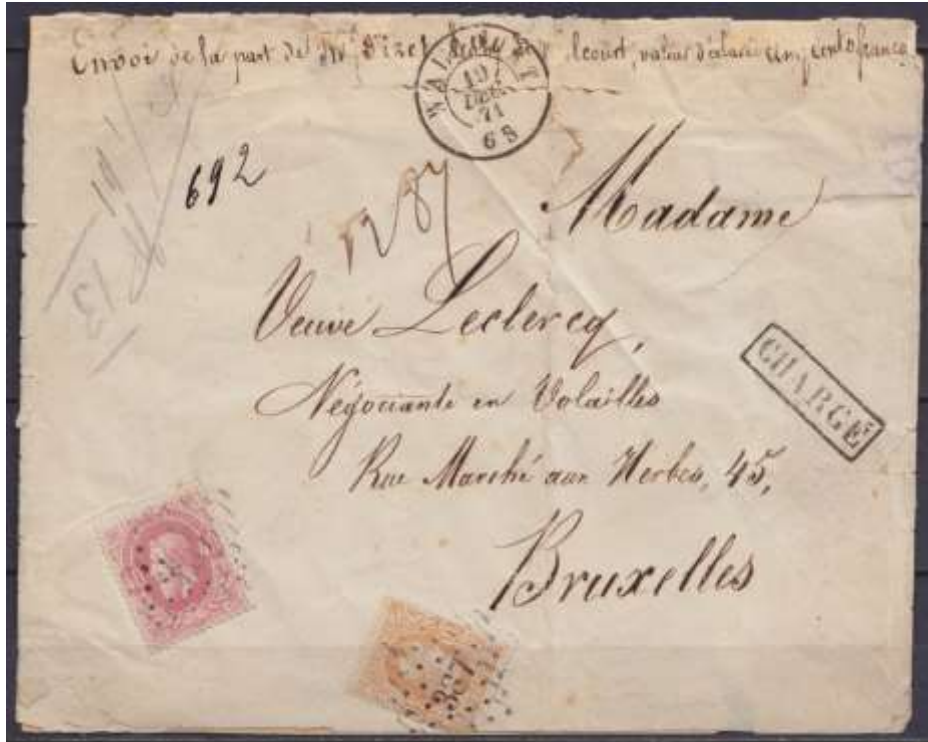 Envoi de la part de Mr court, valeur déclarée cinq cents francs
WALCOURT
19
DEC
71
6 S
692
Madame
Veuve Leclercq,
Négociante en Volailles
Rue Marché aux Herbes, 45,
Bruxelles
CHARGÉ
387